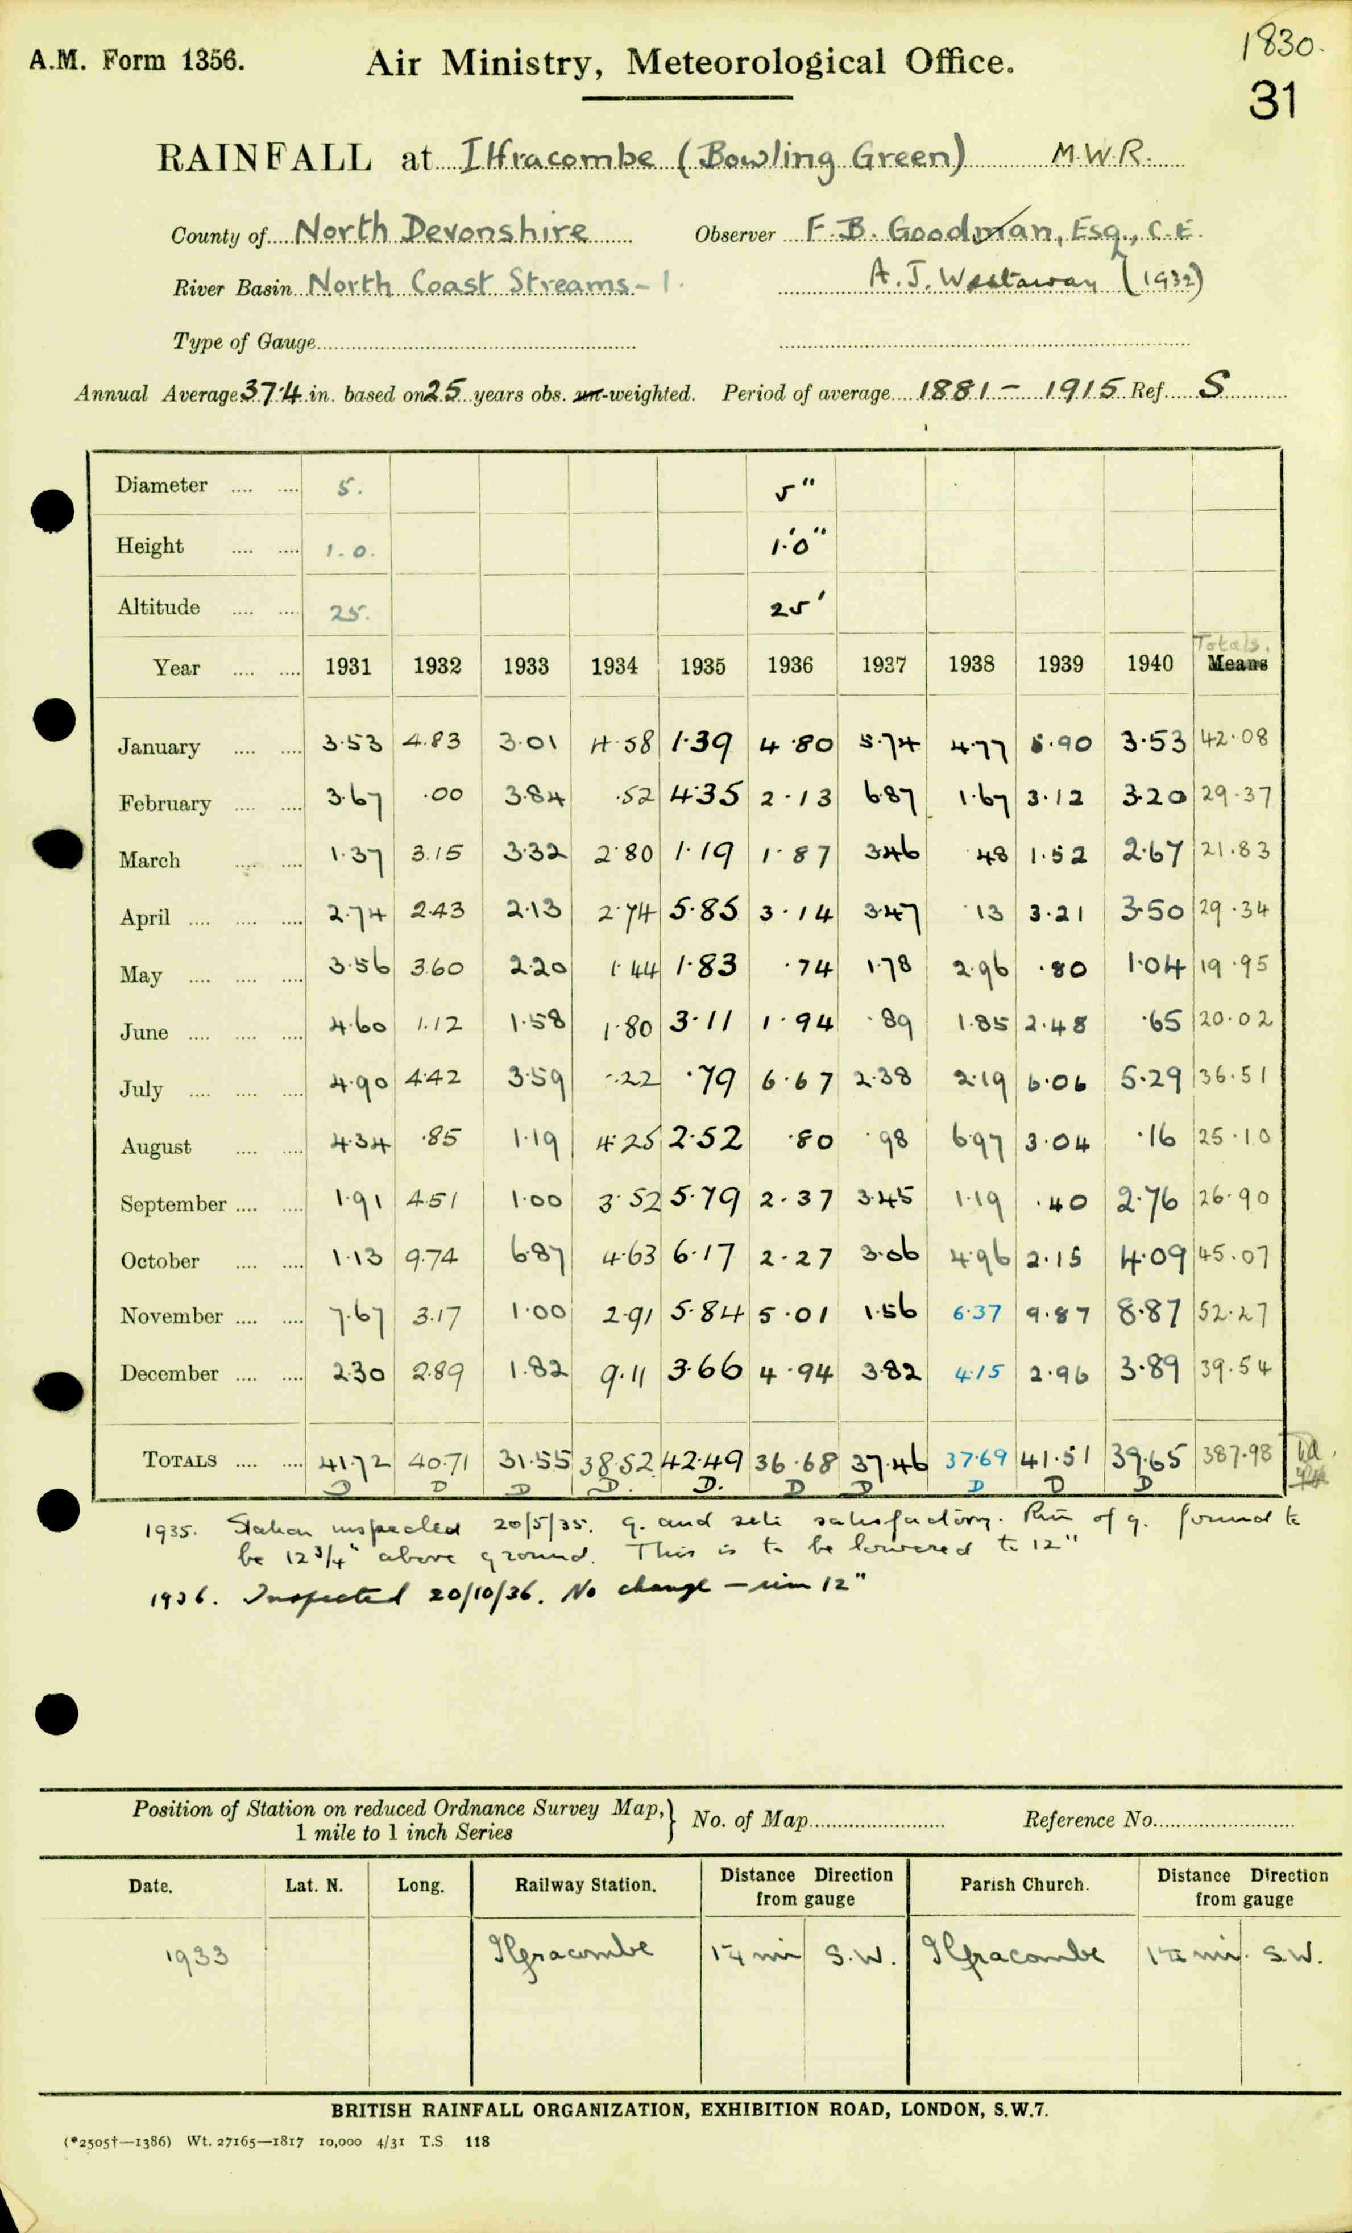 A.M. Form 1356.
Air Ministry, Meteorological Office.
1830.
31
RAINFALL at Ilfracombe (Bowling Green) M.W.R.
County of North Devonshire Observer F. B. Goodman, Esq., C.E.
River Basin North Coast Streams - 1. A. J. Westaway (1932)
Type of Gauge
Annual Average 37.4 in. based on 25 years obs. un-weighted. Period of average 1881 - 1915 Ref. S
Diameter 5. 5"
Height 1.0. 1'0"
Altitude 25. 25'
Totals.
Year 1931 1932 1933 1934 1935 1936 1937 1938 1939 1940 Means
January 3.53 4.83 3.01 4.58 1.39 4.80 5.74 4.77 5.90 3.53 42.08
February 3.67 .00 3.84 .52 4.35 2.13 6.87 1.67 3.12 3.20 29.37
March 1.37 3.15 3.32 2.80 1.19 1.87 3.46 .48 1.52 2.67 21.83
April 2.74 2.43 2.13 2.74 5.85 3.14 3.47 .13 3.21 3.50 29.34
May 3.56 3.60 2.20 1.44 1.83 .74 1.78 2.96 .80 1.04 19.95
June 4.60 1.12 1.58 1.80 3.11 1.94 .89 1.85 2.48 .65 20.02
July 4.90 4.42 3.59 .22 .79 6.67 2.38 2.19 6.06 5.29 36.51
August 4.34 .85 1.19 4.25 2.52 .80 .98 6.97 3.04 .16 25.10
September 1.91 4.51 1.00 3.52 5.79 2.37 3.45 1.19 .40 2.76 26.90
October 1.13 9.74 6.87 4.63 6.17 2.27 3.06 4.96 2.15 4.09 45.07
November 7.67 3.17 1.00 2.91 5.84 5.01 1.56 6.37 9.87 8.87 52.27
December 2.30 2.89 1.82 9.11 3.66 4.94 3.82 4.15 2.96 3.89 39.54
TOTALS 41.72 40.71 31.55 38.52 42.49 36.68 37.46 37.69 41.51 39.65 387.98
D D D D. D. D D D D D
1935. Station inspected 20/5/35. g. and site satisfactory. Rim of g. found to
be 12 3/4" above ground. This is to be lowered to 12"
1936. Inspected 20/10/36. No change - rim 12"
Position of Station on reduced Ordnance Survey Map, } No. of Map Reference No.
1 mile to 1 inch Series
Date. Lat. N. Long. Railway Station. Distance Direction from gauge Parish Church. Distance Direction from gauge
1933 Ilfracombe S.W. Ilfracombe S.W.
BRITISH RAINFALL ORGANIZATION, EXHIBITION ROAD, LONDON, S.W.7.
(*2505†—1386) Wt. 27165—1817 10,000 4/31 T.S 118